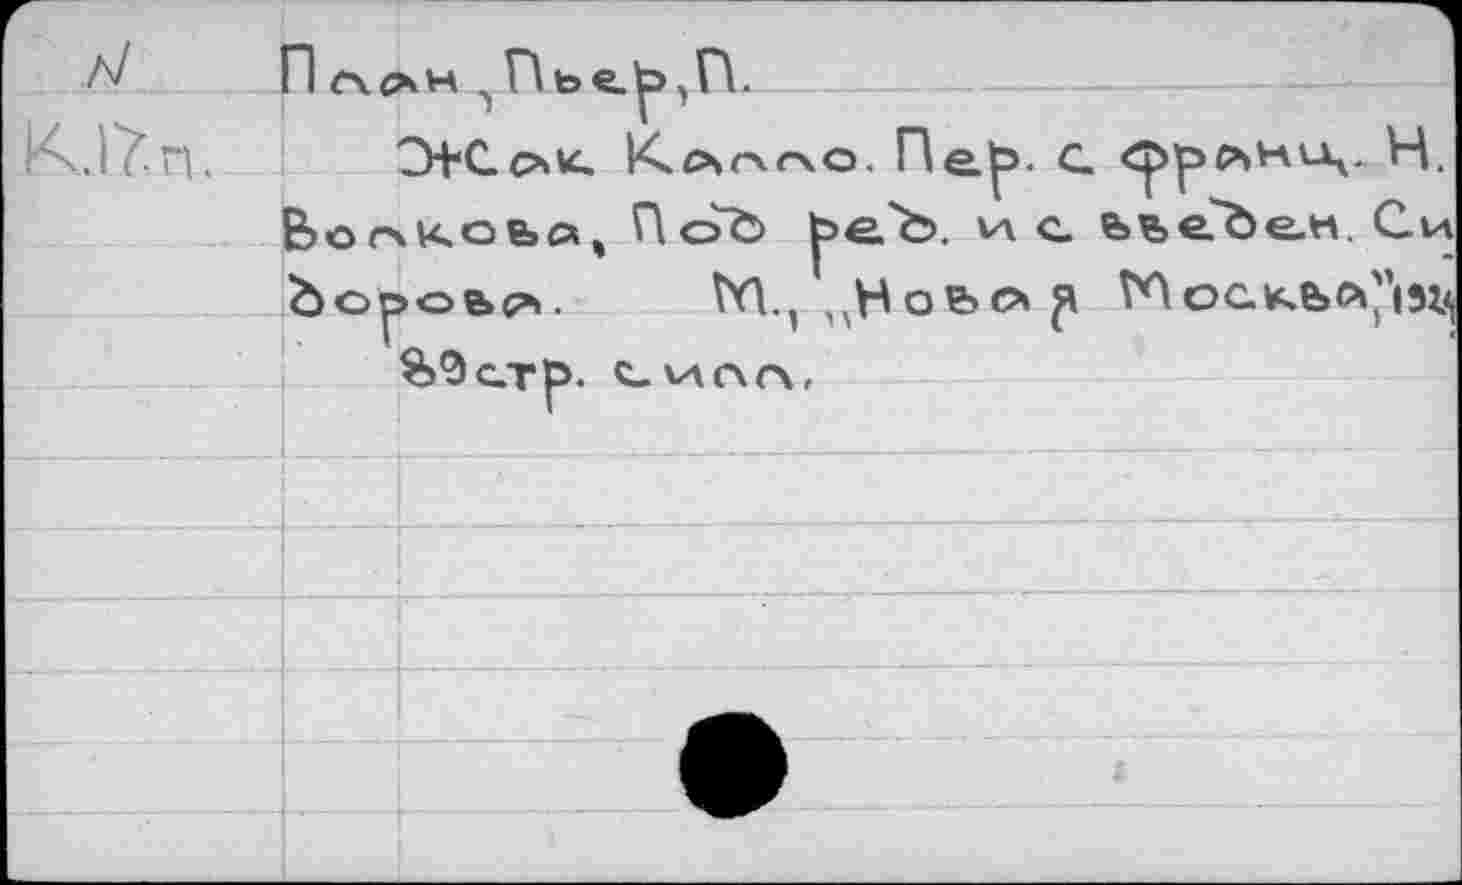 N План, Пьер, П.
К.17.п. Жак Калло. Пер. с франц. Н.
Волкова, Под ред. и с введен. Си
дорова. М., „Новая Москва", 192
89 стр. с илл.